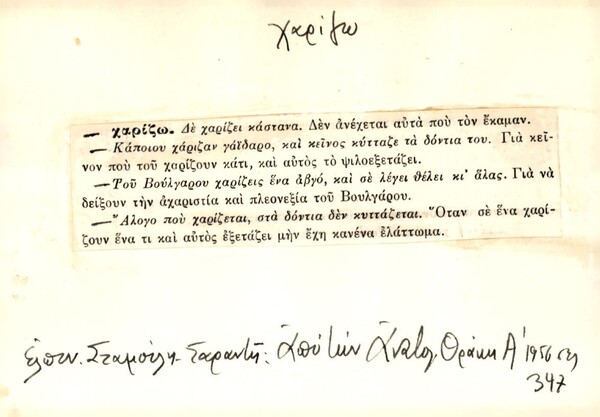 χαρίζω
— χαρίζω. Δὲ χαρίζει κάστανα. Δὲν ἀνέχεται αὐτὰ ποὺ τὸν ἔκαμαν.
— Κάποιου χάριζαν γάϊδαρο, καὶ κεῖνος κύτταζε τὰ δόντια του. Γιὰ κεῖ-
νον ποὺ τοῦ χαρίζουν κάτι, καὶ αὐτὸς τὸ ψιλοεξετάζει.
— Τοῦ Βούλγαρου χαρίζεις ἕνα ἀβγό, καὶ σὲ λέγει θέλει κι' ἅλας. Γιὰ νὰ
δείξουν τὴν ἀχαριστία καὶ πλεονεξία τοῦ Βουλγάρου.
— Ἄλογο ποὺ χαρίζεται, στὰ δόντια δὲν κυττάζεται. Ὅταν σὲ ἕνα χαρί-
ζουν ἕνα τι καὶ αὐτὸς ἐξετάζει μὴν ἔχη κανένα ἐλάττωμα.
Ἐλπιν. Σταμούλη-Σαραντῆ: Ἀπὸ τὴν Ἀνατολ. Θράκη Α' 1956 σελ
347